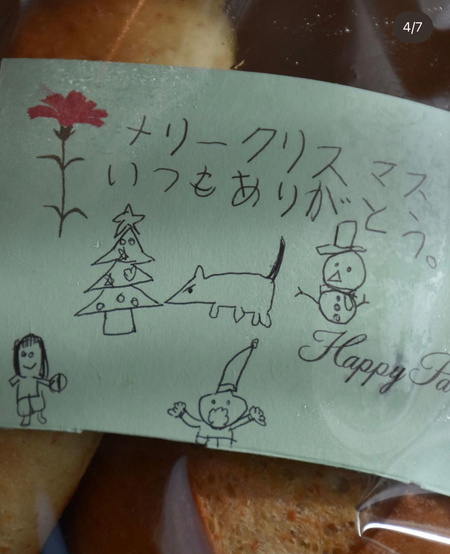 4/7
メリークリスマス
いつもありがとう。
Happy